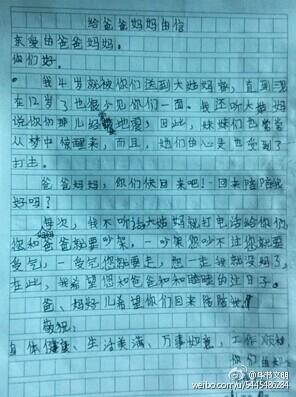 给爸爸妈妈的信
亲爱的爸爸妈妈。
你们好。
我4岁就被你们送到大姑妈家，直到现
在12岁了也很少见你们一面。我还听大姑妈
说你们那儿经常地震，因此，妹妹们也常常
从梦中惊醒来，而且，她们的心灵也受到了
打击。
爸爸妈妈，你们快回来吧！回来陪陪我
好吗？
每次，我不听话大姑妈就打电话给你们，
您和爸爸就要吵架，一吵架您吵不过您就要
受气，一受气您就要走，想一走我就没妈了，
在此，我希望您和爸爸和和睦睦的过日子。
爸、妈，女儿希望你们回来陪陪我！
敬祝：
身体健康、生活美满、万事如意，工作顺利
你们的
@华书文明
weibo.com/u/5445486284